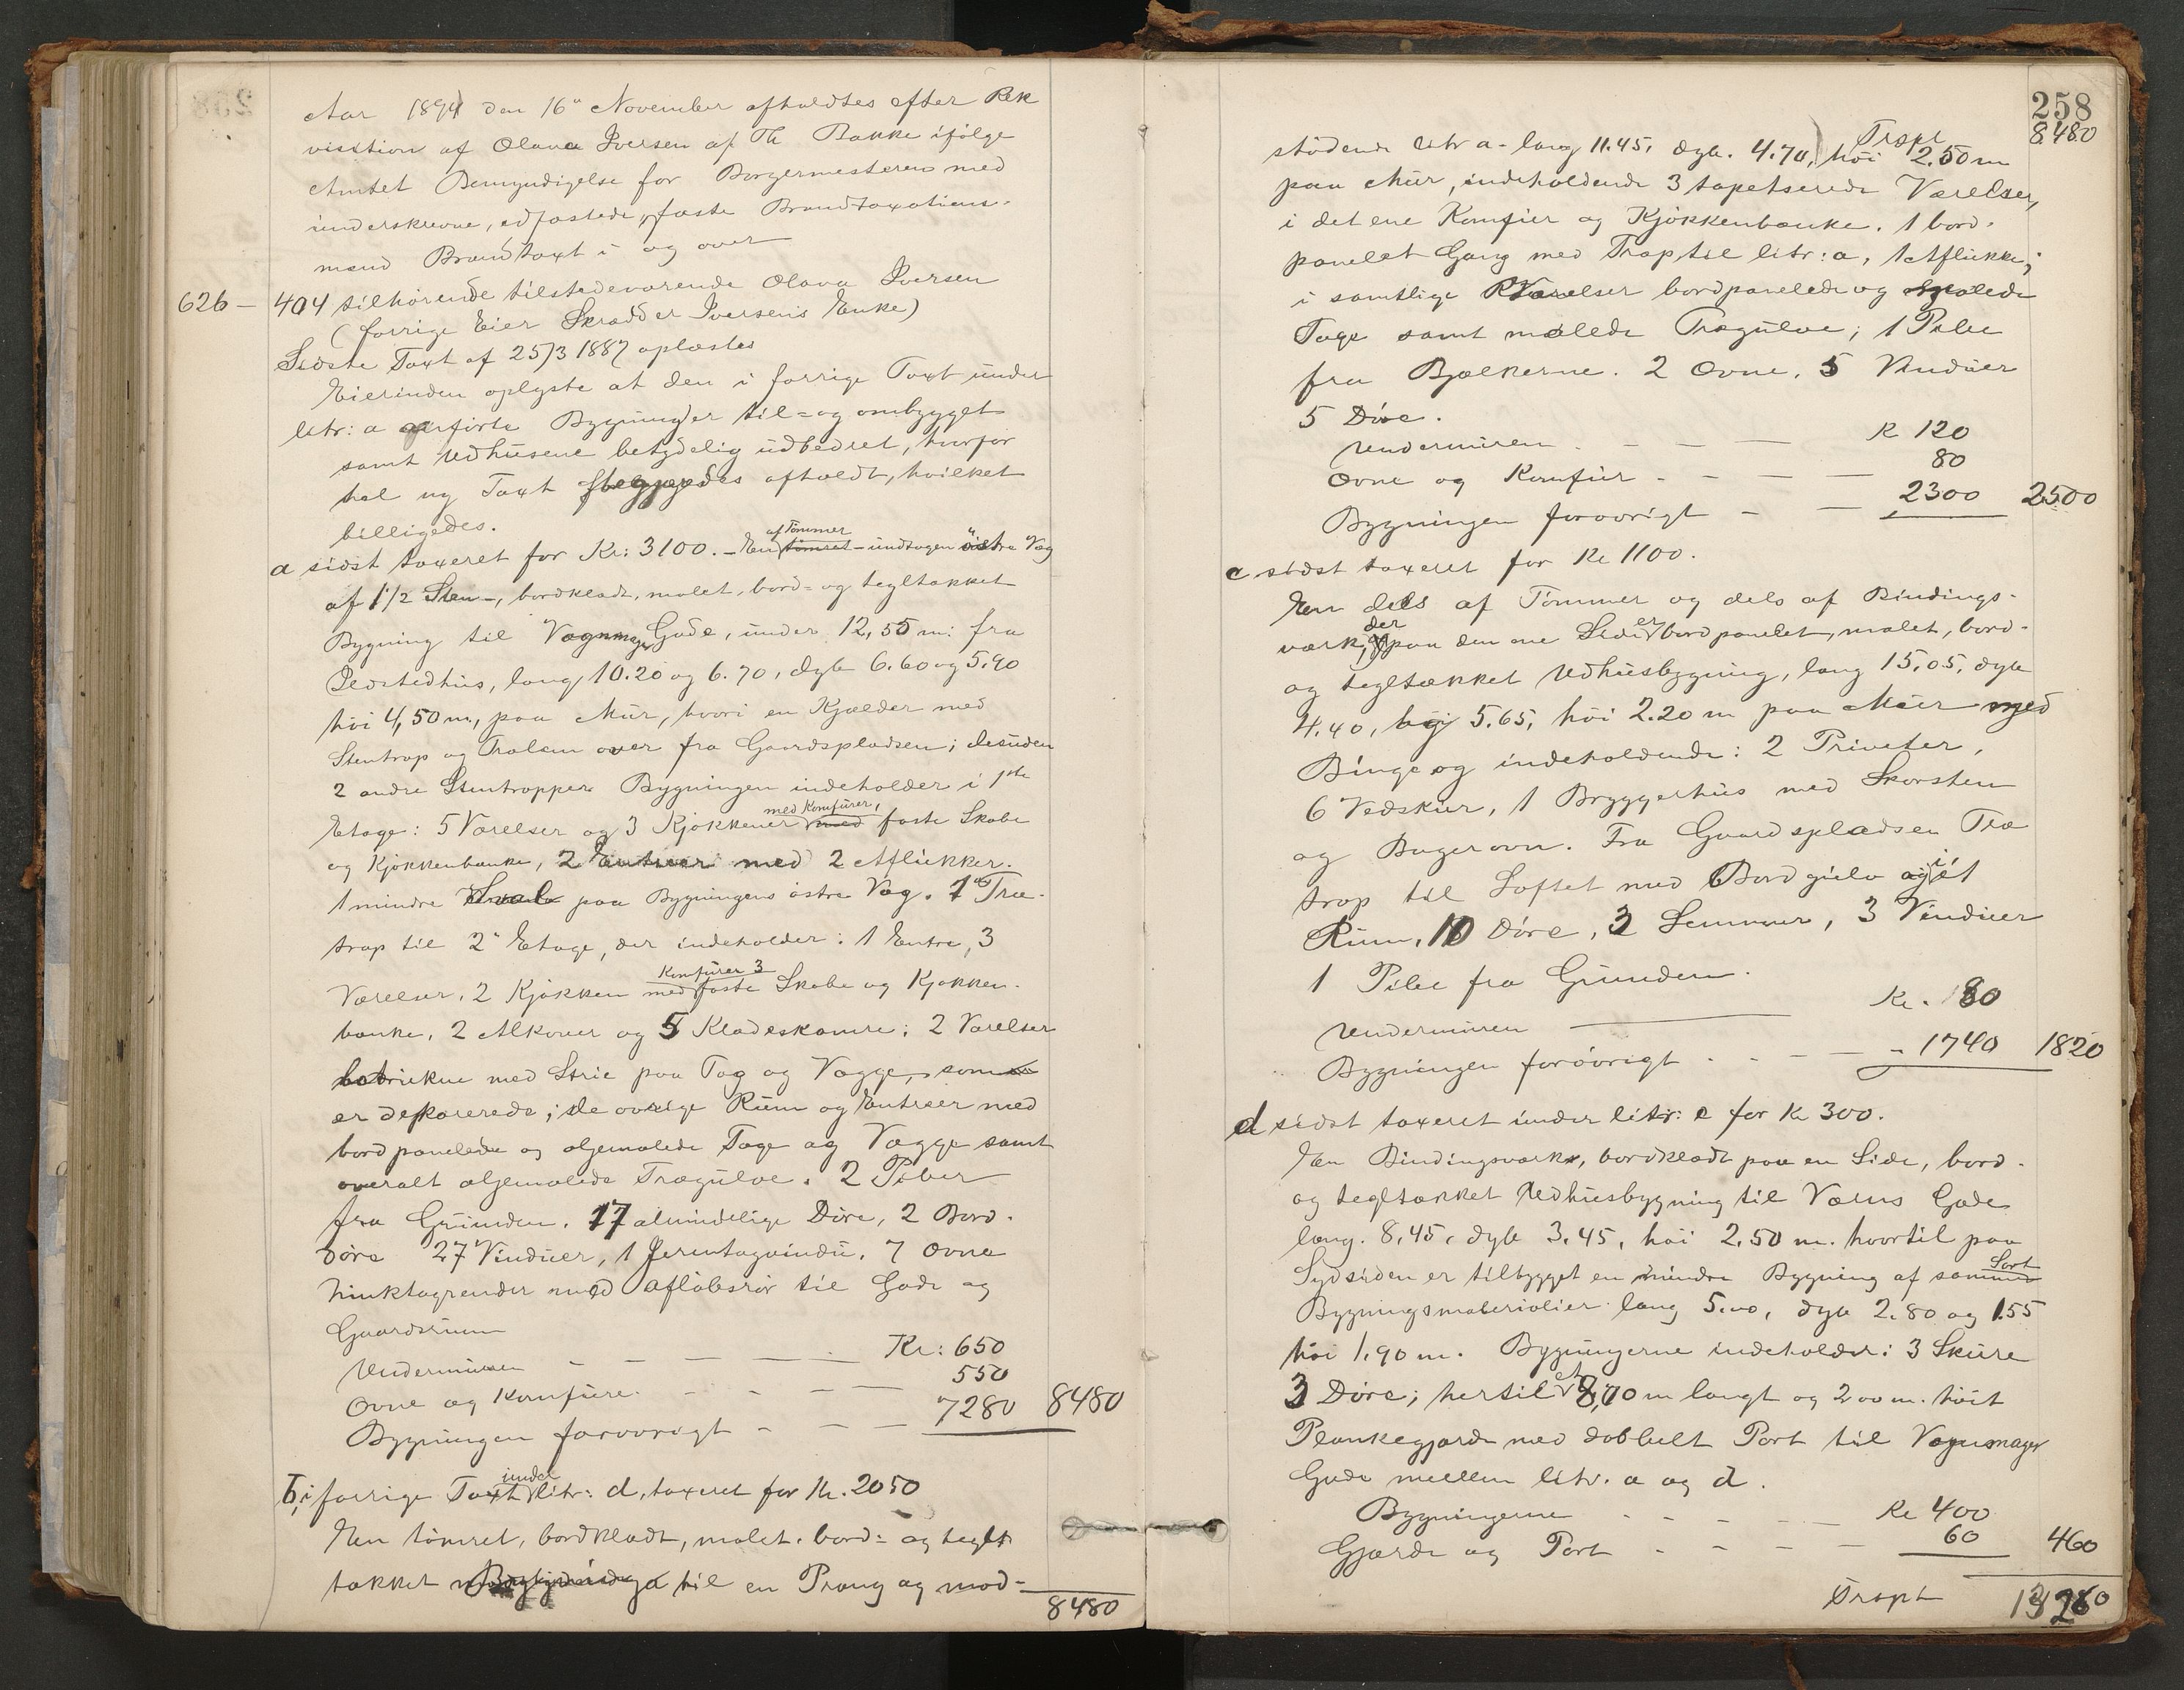 Aar 1894 den 16de November afholdtes efter Rek
visition af Olava Iversen af Th Bakke ifølge
Amtets Bemyndigelse for Borgermesteren med
underskrevne, edfæstede, faste Brandtaxations-
mænd Brandtaxt i og over
626 - 404 tilhørende tilstedeværende Olava Iversen
(forrige Eier Skrædder Iversens Enke)
Sidste Taxt af 25/3 1887 oplæstes
Eierinden oplyste at den i forrige Taxt under
litr: a anførte Bygninger til- og ombygget
samt Udhusene betydelig udbedret, hvorfor
hel ny Taxt begjæredes afholdt, hvilket
billigedes.
a sidst taxeret for Kr: 3100. - En af Tømmer - undtagen østre Væg
af 1 1/2 Sten -, bordklædt, malet, bord- og tegltækket
Bygning til Vognmager Gade, under 12,55 m: fra
Ildstedhus, lang 10.20 og 6.70, dyb 6.60 og 5.90
høi 4,50 m, paa Mur, hvori en Kjælder med
Stentrap og Tralem over fra Gaardspladsen; desuden
2 andre Stentrapper. Bygningen indeholder i 1ste
Etage: 5 Værelser og 3 Kjøkkener med Komfurer, faste Skabe
og Kjøkkenbænke, 2 Entreer med 2 Aflukker.
1 mindre Sval paa Bygningens østre Væg. 1 Træ-
trap til 2den Etage, der indeholder: 1 Entre, 3
Værelser, 2 Kjøkken med Komfurer 3 faste Skabe og Kjøkken-
bænke, 2 Alkover og 5 Klædeskamre; 2 Værelser
betrukne med Strie paa Tag og Vægge, som
er dekorerede; de øvrige Rum og Entreer med
bordpanelede og oljemalede Tage og Vægge samt
overalt oljemalede Trægulve. 2 Piber
fra Grunden. 17 almindelige Døre, 2 Bord-
døre 27 Vinduer, 1 Jerntagvindu. 7 Ovne
Zinktagrender med Afløbsrør til Gade og
Gaardsrum
Undermuren - - - Kr: 650
Ovne og Komfure - - - 550
Bygningen forøvrigt - - - 7280 8480
b, i forrige Taxt under litr: d, taxeret for Kr. 2050
En tømret, bordklædt, malet, bord- og tegl-
tækket Bygning til en Prang og mod-
8480
258
Trspt 8480
stødende litr a - lang 11.45, dyb. 4.70, høi 2,50 m
paa Mur, indeholdende 3 tapetserede Værelser,
i det ene Komfur og Kjøkkenbænke. 1 bord-
panelet Gang med Trap til litr: a, 1 Aflukke;
i samtlige Værelser bordpanelede og malede
Tage samt malede Trægulve; 1 Pibe
fra Bjælkerne. 2 Ovne, 5 Vinduer
5 Døre.
Undermuren - - - K 120
Ovne og Komfur - - - 80
Bygningen forøvrigt - - 2300 2500
c sidst taxeret for Kr 1100.
En dels af Tømmer og dels af Bindings-
værk, der paa den ene Side er bordpanelet, malet, bord-
og tegltækket Udhusbygning, lang 15,05, dyb
4.40, og 5.65, høi 2.20 m paa Mur med
Binge og indeholdende: 2 Priveter,
6 Vedskur, 1 Bryggerhus med Skorsten
og Bagerovn. Fra Gaardspladsen Træ
trap til Loftet med Bordgulv i ét
Rum, 10 Døre, 3 Lemmer, 3 Vinduer
1 Pibe fra Grunden.
Undermuren - Kr. 80
Bygningen forøvrigt - - - 1740 1820
d sidst taxeret under litr: e for Kr 300.
En Bindingsværks, bordklædt paa en Side, bord-
og tegltækket Udhusbygning til Værns Gade
lang. 8,45, dyb 3.45, høi 2,50 m. hvortil paa
Sydsiden er tilbygget en mindre Bygning af samme Sort
Bygningsmaterialier lang 5.00, dyb 2.80 og 1.55
høi 1,90 m. Bygningerne indeholder: 3 Skure
3 Døre; hertil et 8,70 m langt og 2.00 m. høit
Plankegjærde med dobbelt Port til Vognmager
Gade mellem litr. a og d.
Bygningerne - - - Kr 400
Gjærde og Port - - - 60 460
Trspt 13260